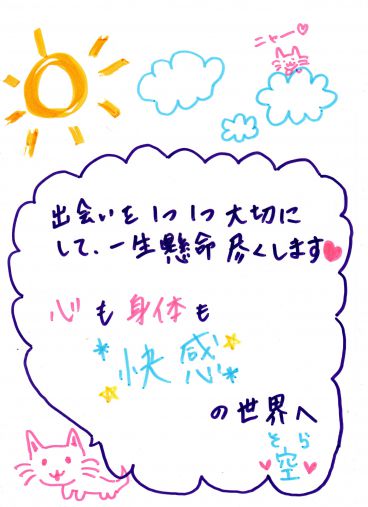 ニャー♡
出会いを1つ1つ大切に
して、一生懸命尽くします♥
心も身体も
快感
の世界へ
そら
♥空♥